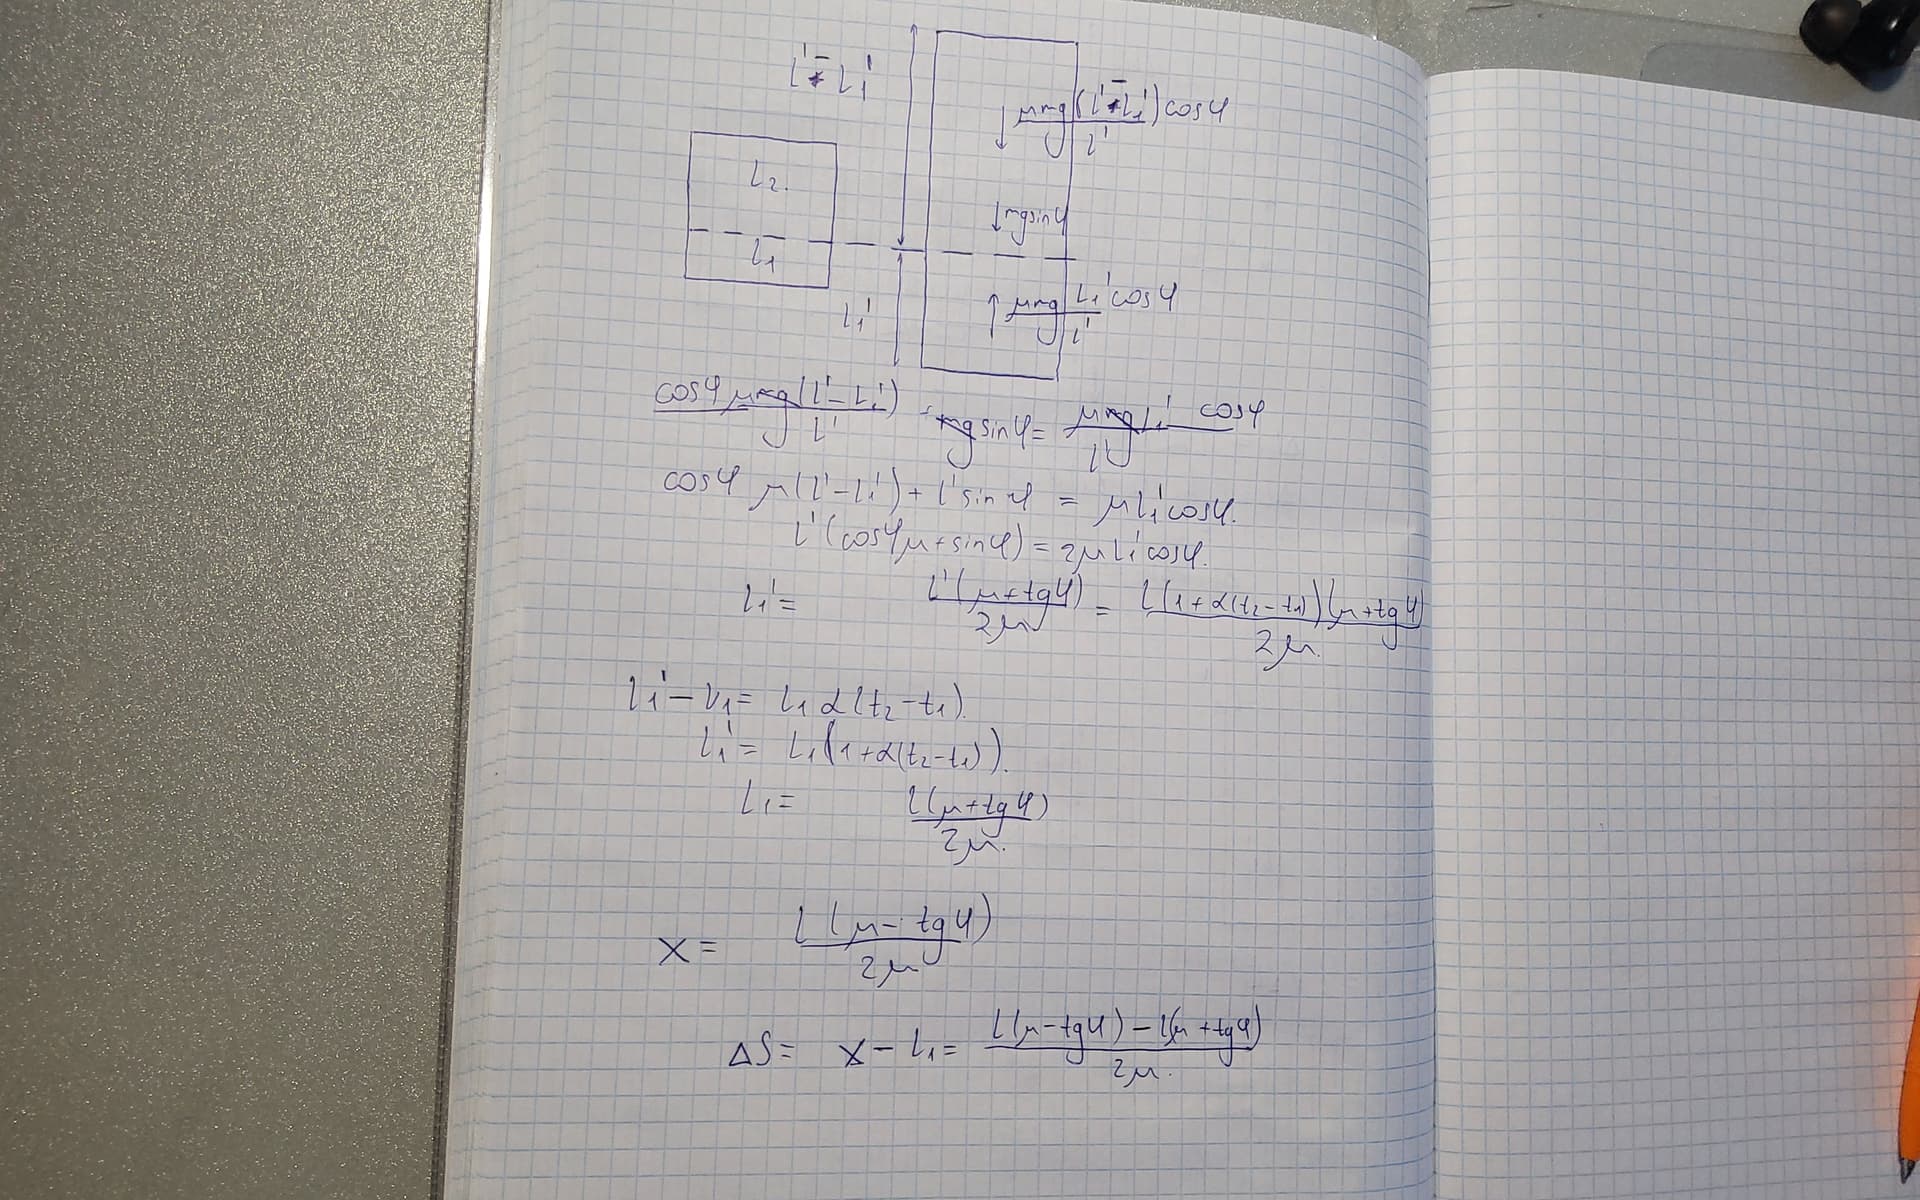 l' - l₁'
μmg(l' - l₁')cosφ / l'
l₂.
mgsinφ
l₁
l₁'
μmg l₁' cosφ / l'
cosφ μmg(l' - l₁') / l' + mgsinφ = μmg l₁' cosφ / l'
cosφ μ(l' - l₁') + l'sinφ = μl₁'cosφ.
l'(cosφμ + sinφ) = 2μl₁'cosφ.
l₁' = l'(μ + tgφ) / 2μ = l(1 + α(t₂ - t₁))(μ + tgφ) / 2μ.
l₁' - l₁ = l₁ α(t₂ - t₁).
l₁' = l₁(1 + α(t₂ - t₁)).
l₁ = l(μ + tgφ) / 2μ.
x = l(μ - tgφ) / 2μ
ΔS = x - l₁ = l(μ - tgφ) - l(μ + tgφ) / 2μ.